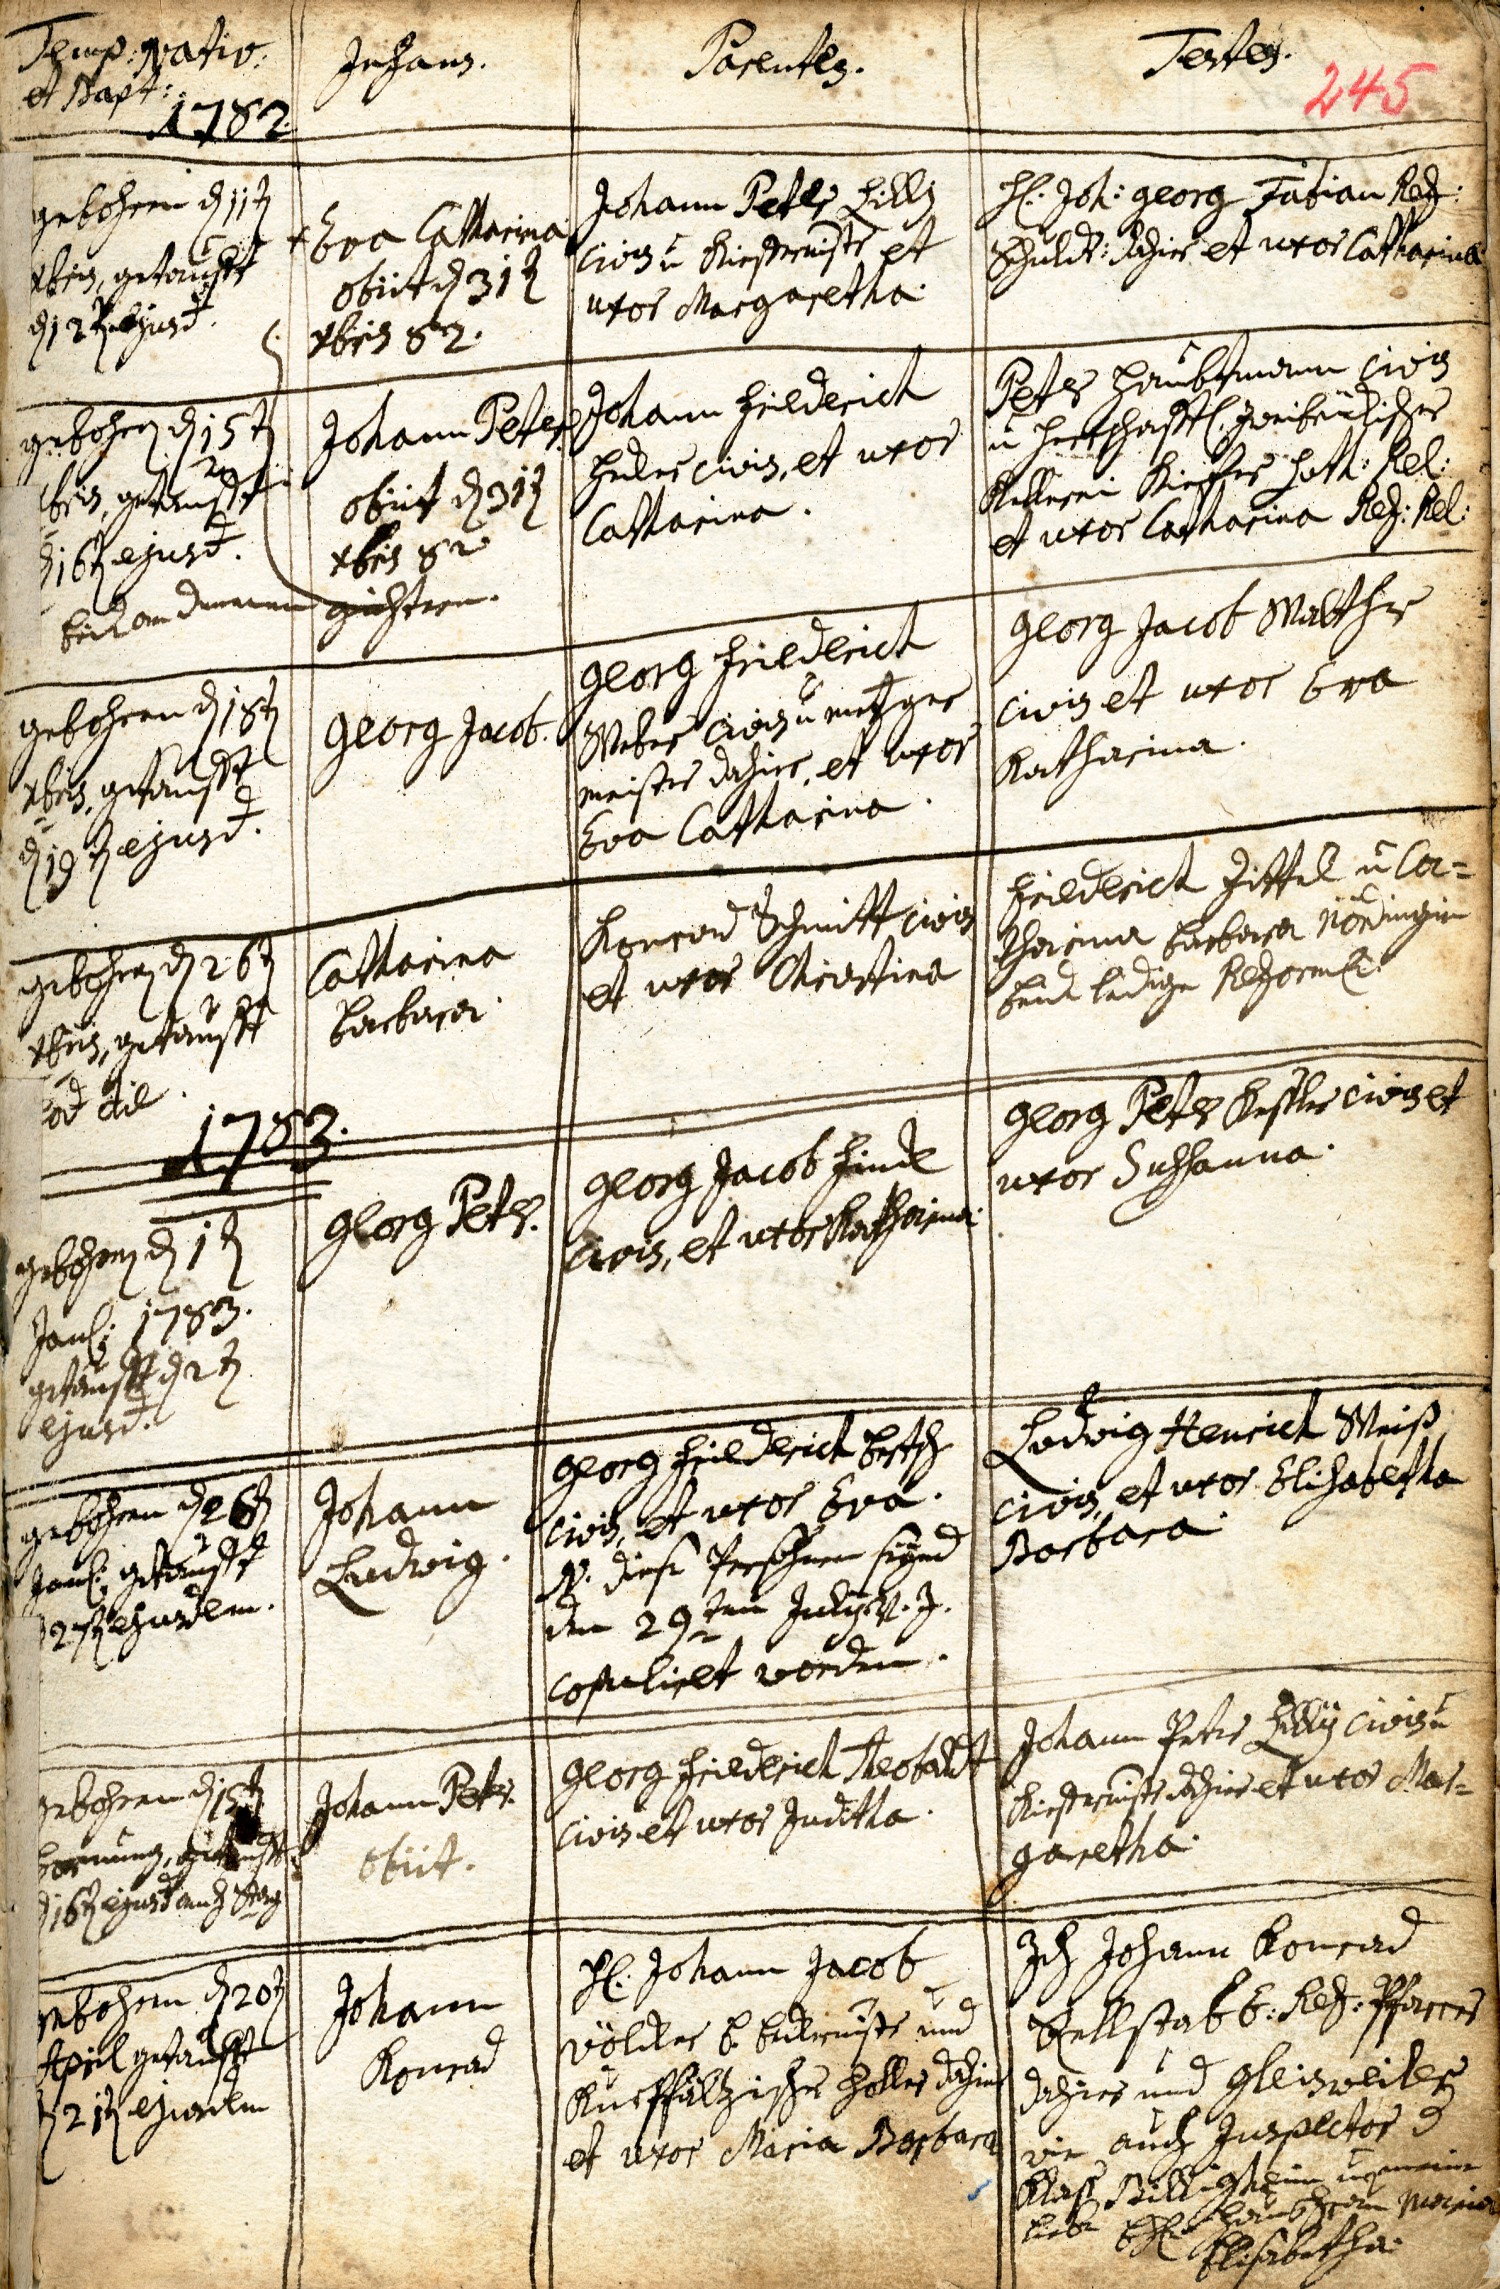 Temp: Nativ:
et Bapt:
1782.
Infans.
Parentes.
Testes.
245
gebohren d 11t
xbris, getaufft
d 12t ejusd.
+ Eva Catharina
obiit d 31t
xbris 82.
Johann Peter Lilly
civis u Küffermstr et
uxor Margaretha.
H. Joh: Georg Fabian Ref:
Schuld: dahier et uxor Catharina
gebohren d 15t
xbris, getaufft
d 16t ejusd.
beide an denen gichtern.
Johann Peter
obiit d 31t
xbris 82
Johann Friederich
civis, et uxor
Catharina.
Peter Haubtmann civis
u herschafftl.
Kellerei Kieffer Luth: Rel:
et uxor Catharina Ref: Rel:
gebohren d 18t
xbris, getaufft
d 19t ejusd.
Georg Jacob.
Georg Friederich
Weber civis u metzger
meister dahier, et uxor
Eva Catharina.
Georg Jacob Walther
civis et uxor Eva
Katharina.
gebohren d 26t
xbris, getaufft
eod die.
Catharina
Barbara.
Konrad Schmitt civis
et uxor Christina
Friederich Zittel u Ca=
tharina Barbara Nördingerin
beide ledige Reform
1783.
gebohren d 1t
Jan: 1783.
getaufft d 2t
ejusd.
Georg Peter.
Georg Jacob
civis, et uxor Katharina.
Georg Peter Kessler civis et
uxor Susanna.
gebohren d 26t
Jan: getaufft
27t ejusdem.
Johann
Ludwig.
Georg Friederich Bertsch
civis, et uxor Eva.
N. diese Persohnen seynd
den 29ten July v. J.
copuliert worden.
Ludwig Henrich Weiß
civis, et uxor Elisabetha
Barbara.
gebohren d 15t
Hornung, getaufft
d 16t ejusd
Johann Peter.
obiit.
Georg Friederich Theobaldt
civis et uxor Juditha.
Johann Peter Lilly civis u
Küffermstr dahier et uxor Mar=
garetha.
gebohren d 20t
April getaufft
d 21t ejusdem
Johann
Konrad
H. Johann Jacob
Völcker b. beckermstr und
Kurpfältzischer Zoller dahier
et uxor Maria Barbara
Ich Johann Konrad
Rellstab b: Ref: Pfarrer
dahier und Gleisweiler
wie auch Inspector d
Klass Billigheim u meine
liebe Haußfrau Maria
Elisabetha.